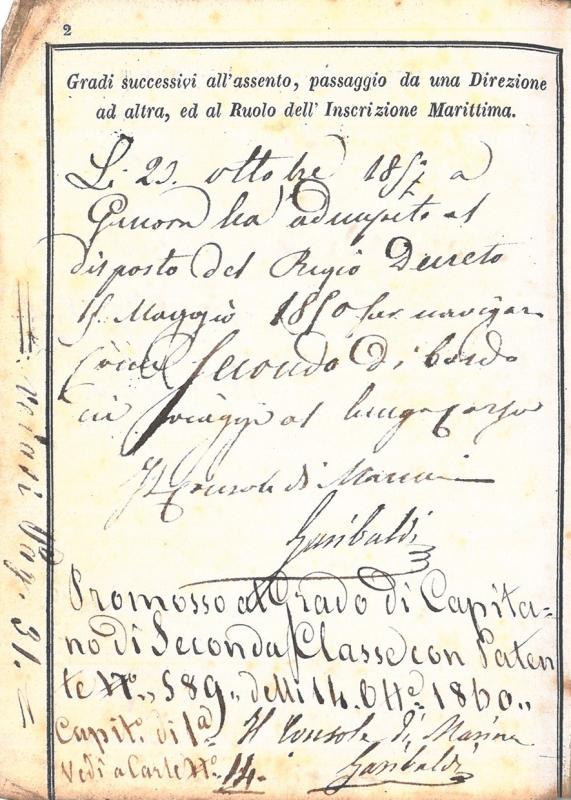 2
Gradi successivi all'assento, passaggio da una Direzione
ad altra, ed al Ruolo dell' Inscrizione Marittima.
Li 23. ottobre 1857 a
Genova ha adempito al
disposto del Regio Decreto
Maggio 1850 per navigare
Secondo di bordo
in viaggi al lungo corso
Il Console di Marina
Garibaldi
Promosso al Grado di Capita=
no di Seconda Classe con Paten
te N.º 589,, delli 14. Ott.e 1860,,
Capit.º di 1.a Il Console di Marina
Vedi a Carte N.º 14. Garibaldi
= vedasi Pag. 31. =